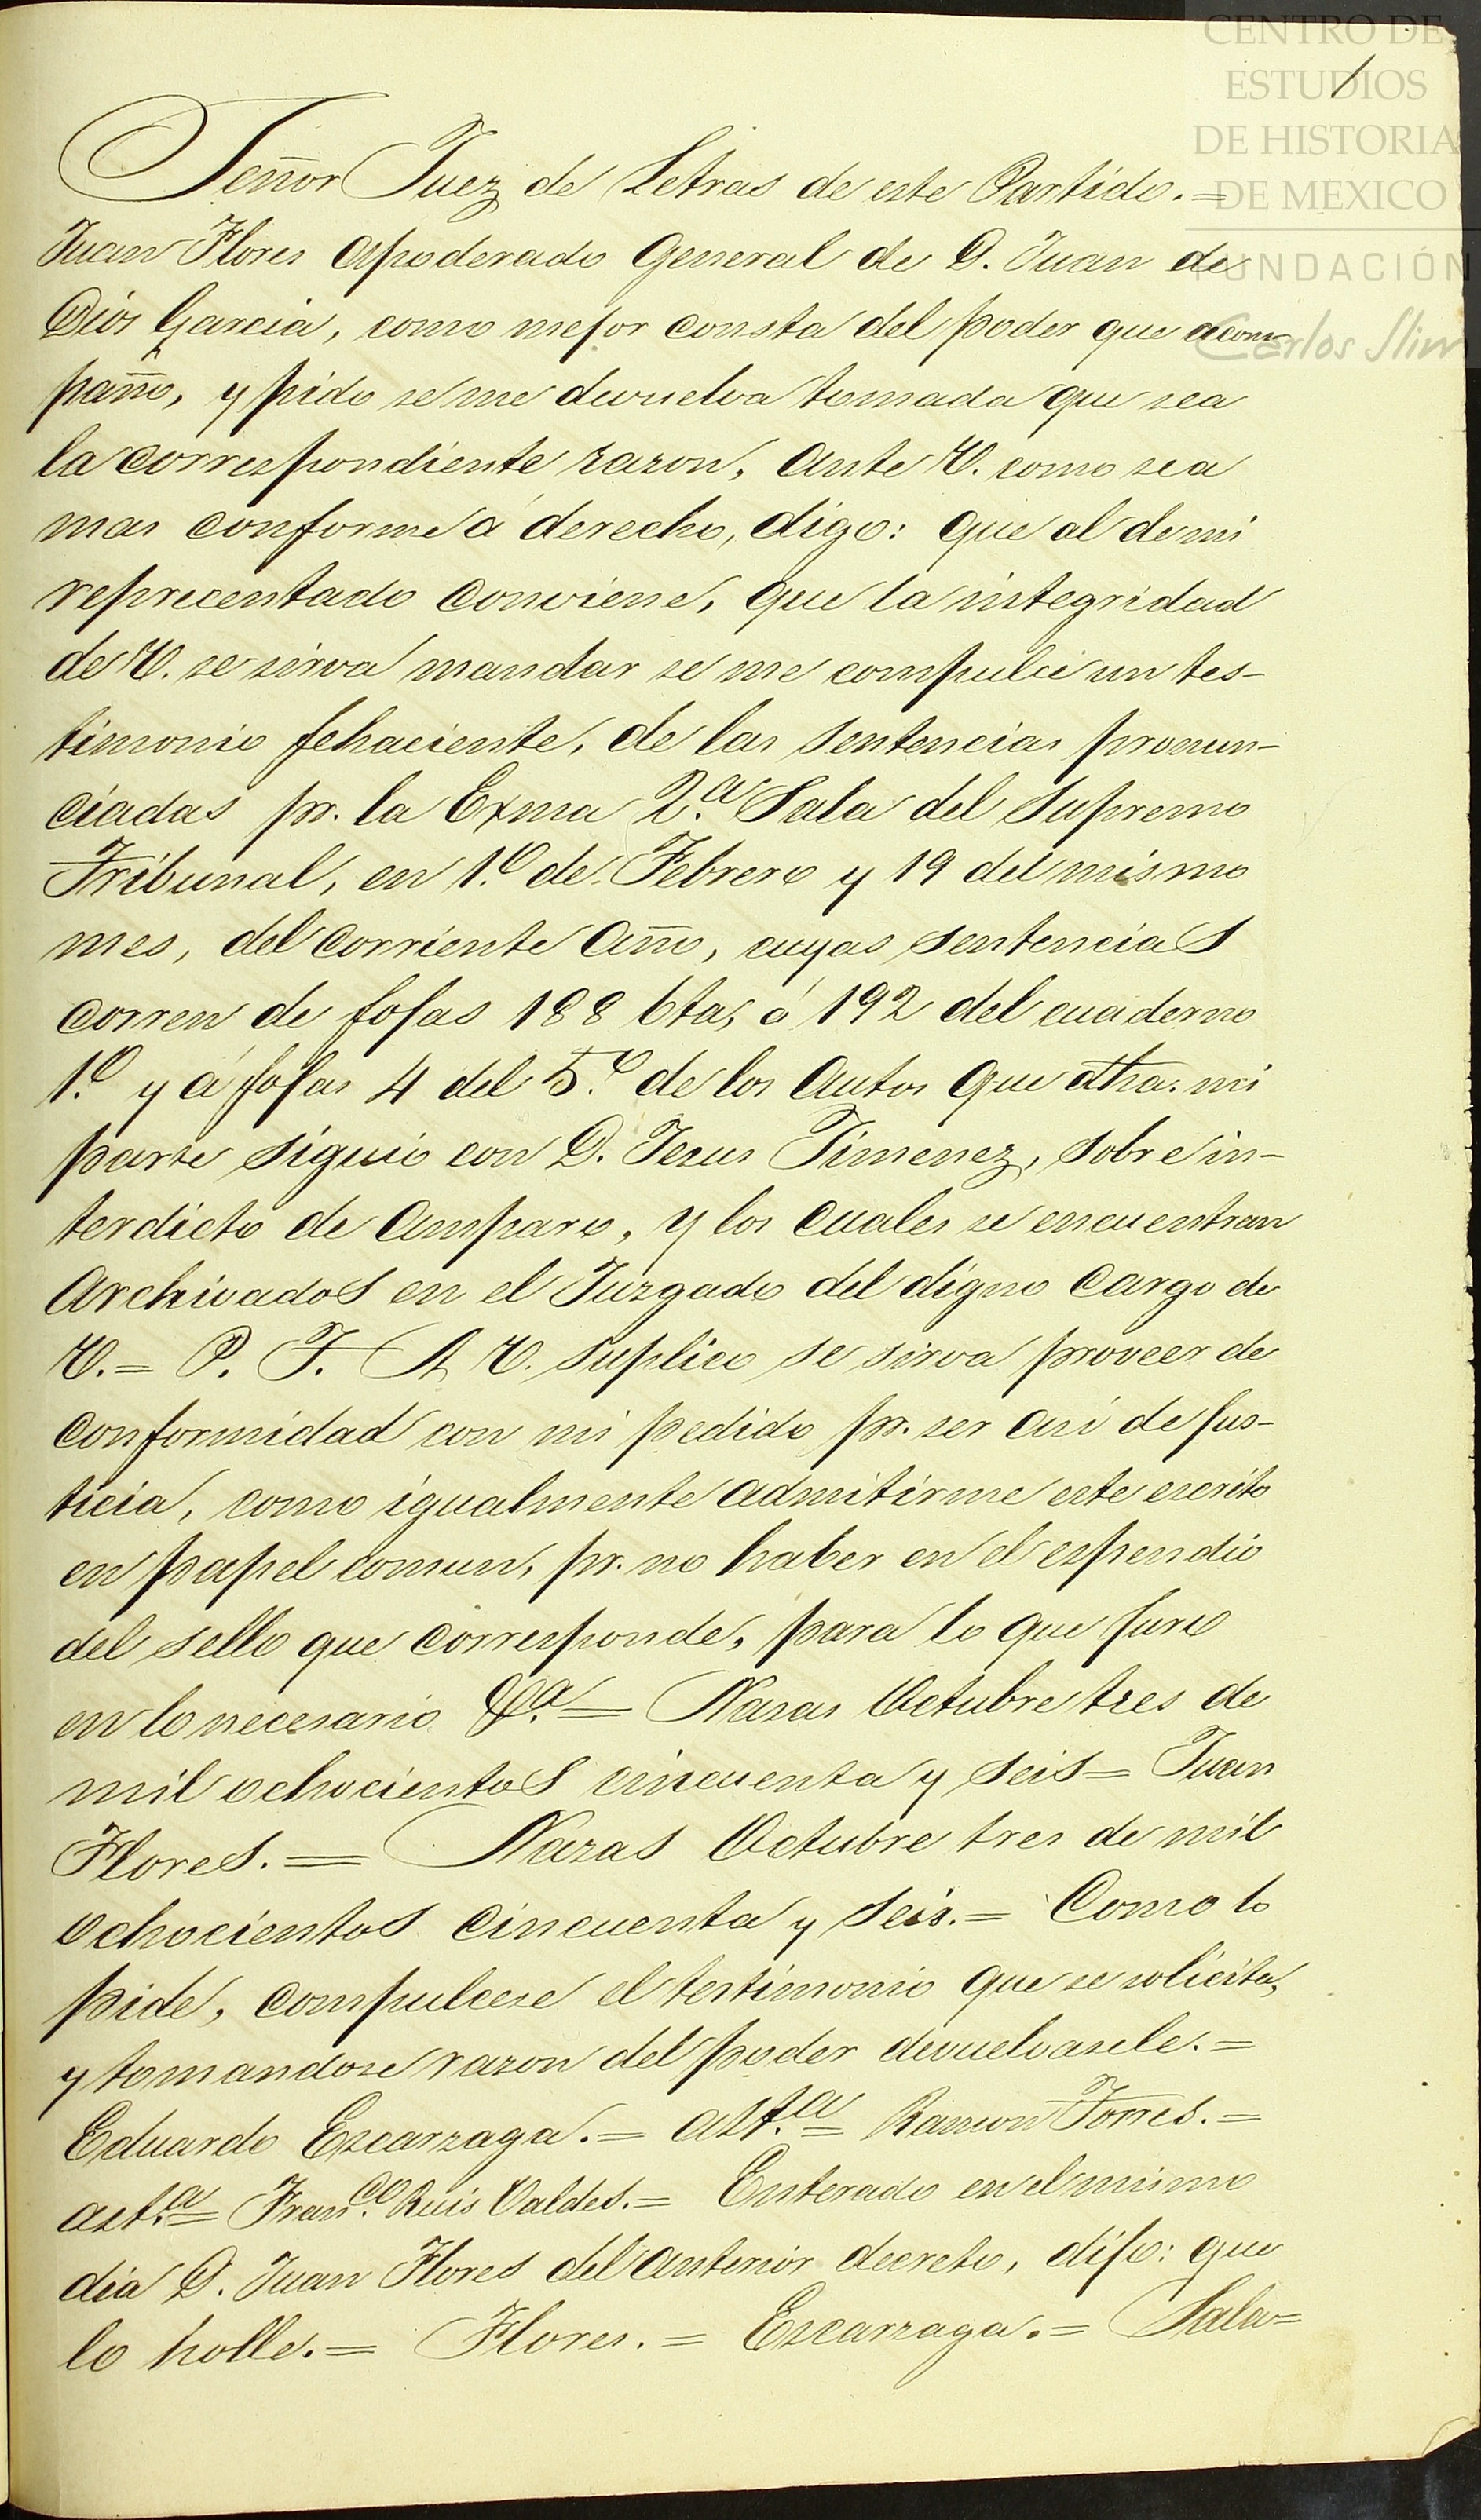 CENTRO DE
ESTUDIOS
DE HISTORIA
DE MEXICO
FUNDACIÓN
Carlos Slim
1
Señor Juez de Letras de este Partido.=
Juan Flores Apoderado General de D. Juan de
Dios Garcia, como mejor consta del poder que acom-
paño, y pido se me devuelva tomada que sea
la correspondiente razon, Ante V. como sea
mas conforme á derecho, digo: que al de mi
reprecentado conviene, que la integridad
de V. se sirva mandar se me compulce un tes-
timonio fehaciente, de las sentencias pronun-
ciadas pr. la Exma 2.a Sala del Supremo
Tribunal, en 1.o de Febrero y 19 del mismo
mes, del corriente Año, cuyas sentencias
corren de fojas 188 bta, á 192 del cuaderno
1.o y á fojas 4 del 5.o de los Autos que dha. mi
parte siguió con D. Jesus Jimenez, sobre in-
terdicto de Amparo, y los cuales se encuentran
Archivados en el Juzgado del digno cargo de
V.= P. T. A V. suplico se sirva proveer de
conformidad con mi pedido pr. ser Asi de jus-
ticia, como igualmente admitirme este escrito
en papel comun, pr. no haber en el espendio
del sello que corresponde, para lo que juro
en lo necesario &.a= Nazas Octubre tres de
mil ochocientos cincuenta y seis= Juan
Flores.= Nazas Octubre tres de mil
ochocientos cincuenta y seis.= Como lo
pide, compulcese el testimonio que se solicita,
y tomandose razon del poder devuelvasele.=
Eduardo Escarzaga.= Ast.a= Ramon Torres.=
ast.a= Fran.co Ruis Valdes.= Enterado en el mismo
dia D. Juan Flores del anterior decreto, dijo: que
lo holle.= Flores.= Escarzaga.= Sala=